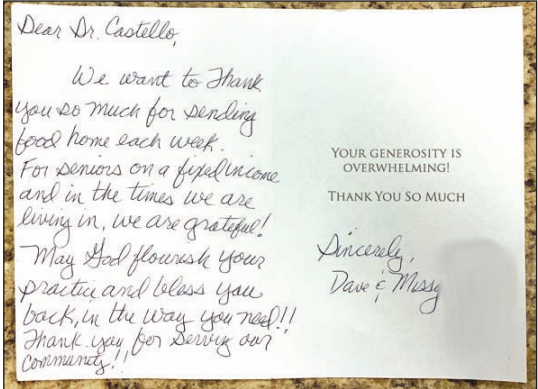 Dear Dr. Castello,
We want to Thank
you so much for sending
food home each week.
For seniors on a fixed income
and in the times we are
living in, we are grateful!
May God flouresh your
practice and bless you
back, in the way you need!!
Thank you for serving our
community!!
YOUR GENEROSITY IS
OVERWHELMING!
THANK YOU SO MUCH
Sincerely,
Dave & Missy